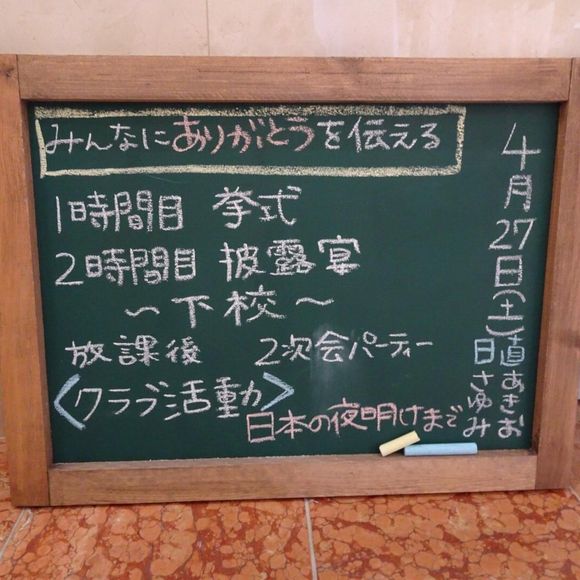 みんなにありがとうを伝える
1時間目 挙式
2時間目 披露宴
～下校～
放課後 2次会パーティー
〈クラブ活動〉
日本の夜明けまで
4月27日(土)
日直
あきお
さゆみ